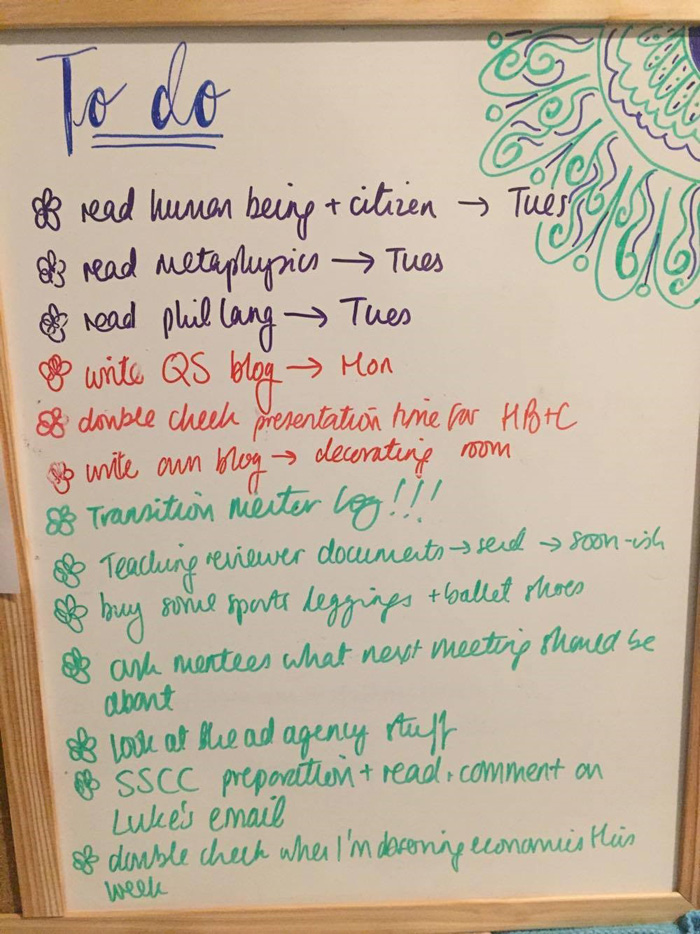 To do
read human being + citizen → Tues
read metaphysics → Tues
read phil lang → Tues
write QS blog → Mon
double check presentation time for HB+C
write own blog → decorating room
Transition mentor log!!!
Teaching reviewer documents → send → soon-ish
buy some sports leggings + ballet shoes
ask mentees what next meeting should be
about
look at the ad agency stuff
SSCC preparation + read + comment on
Luke's email
double check when I'm economics this
week